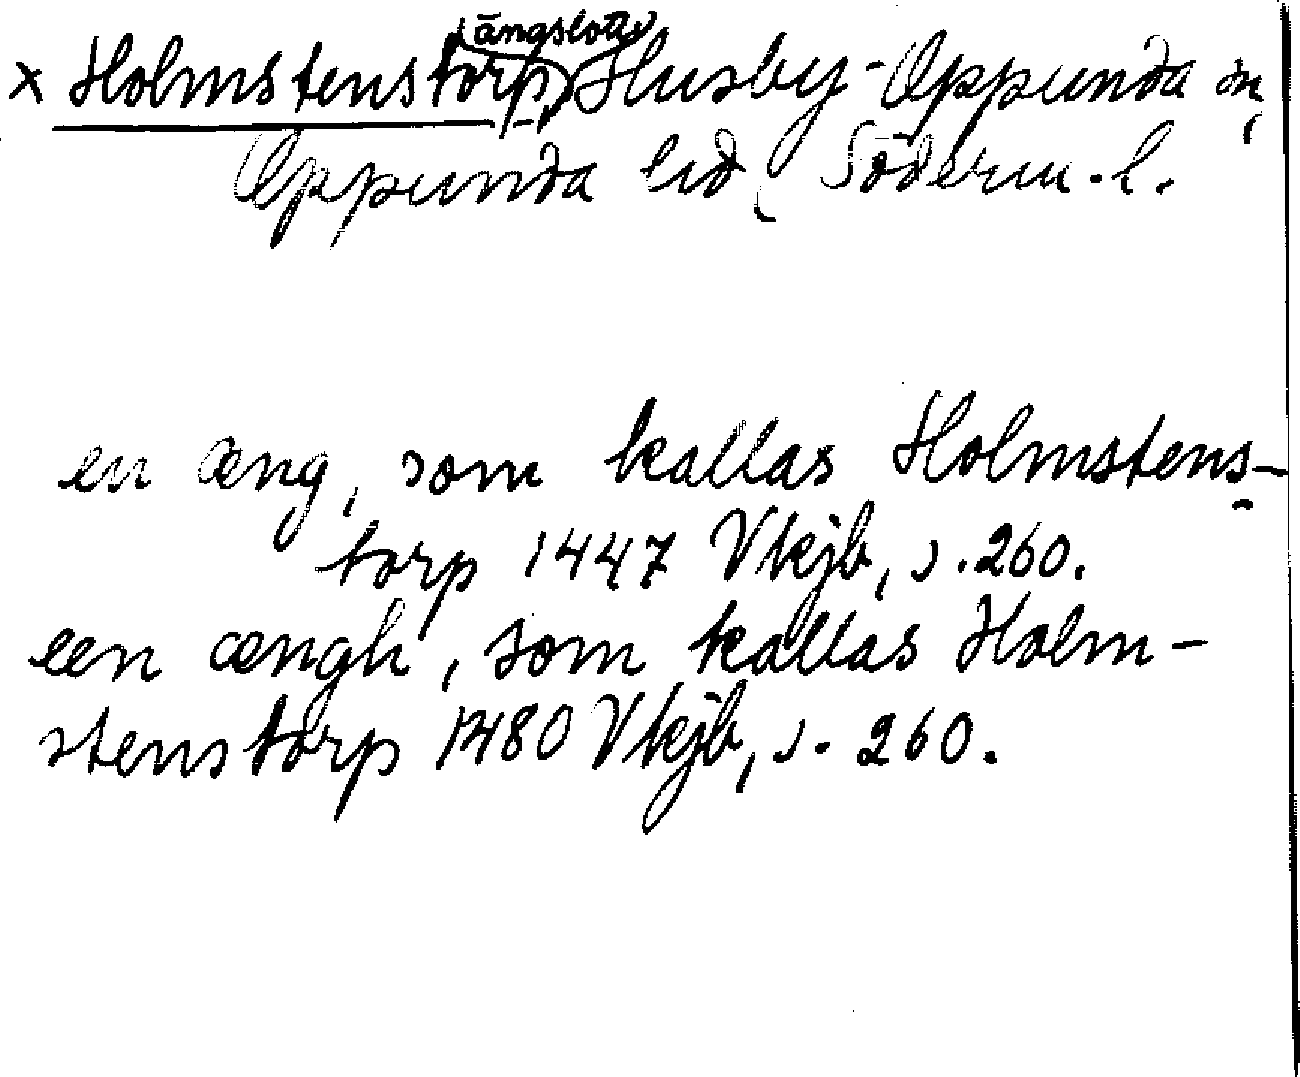 ängslott
x Holmstenstorp, Husby-Oppunda sn,
Oppunda hd, Söderm.l.
en æng, som kallas Holmstens-
torp 1447 Vkjb, s. 260.
een ængh, som kallas Holm-
stenstorp 1480 Vkjb, s. 260.